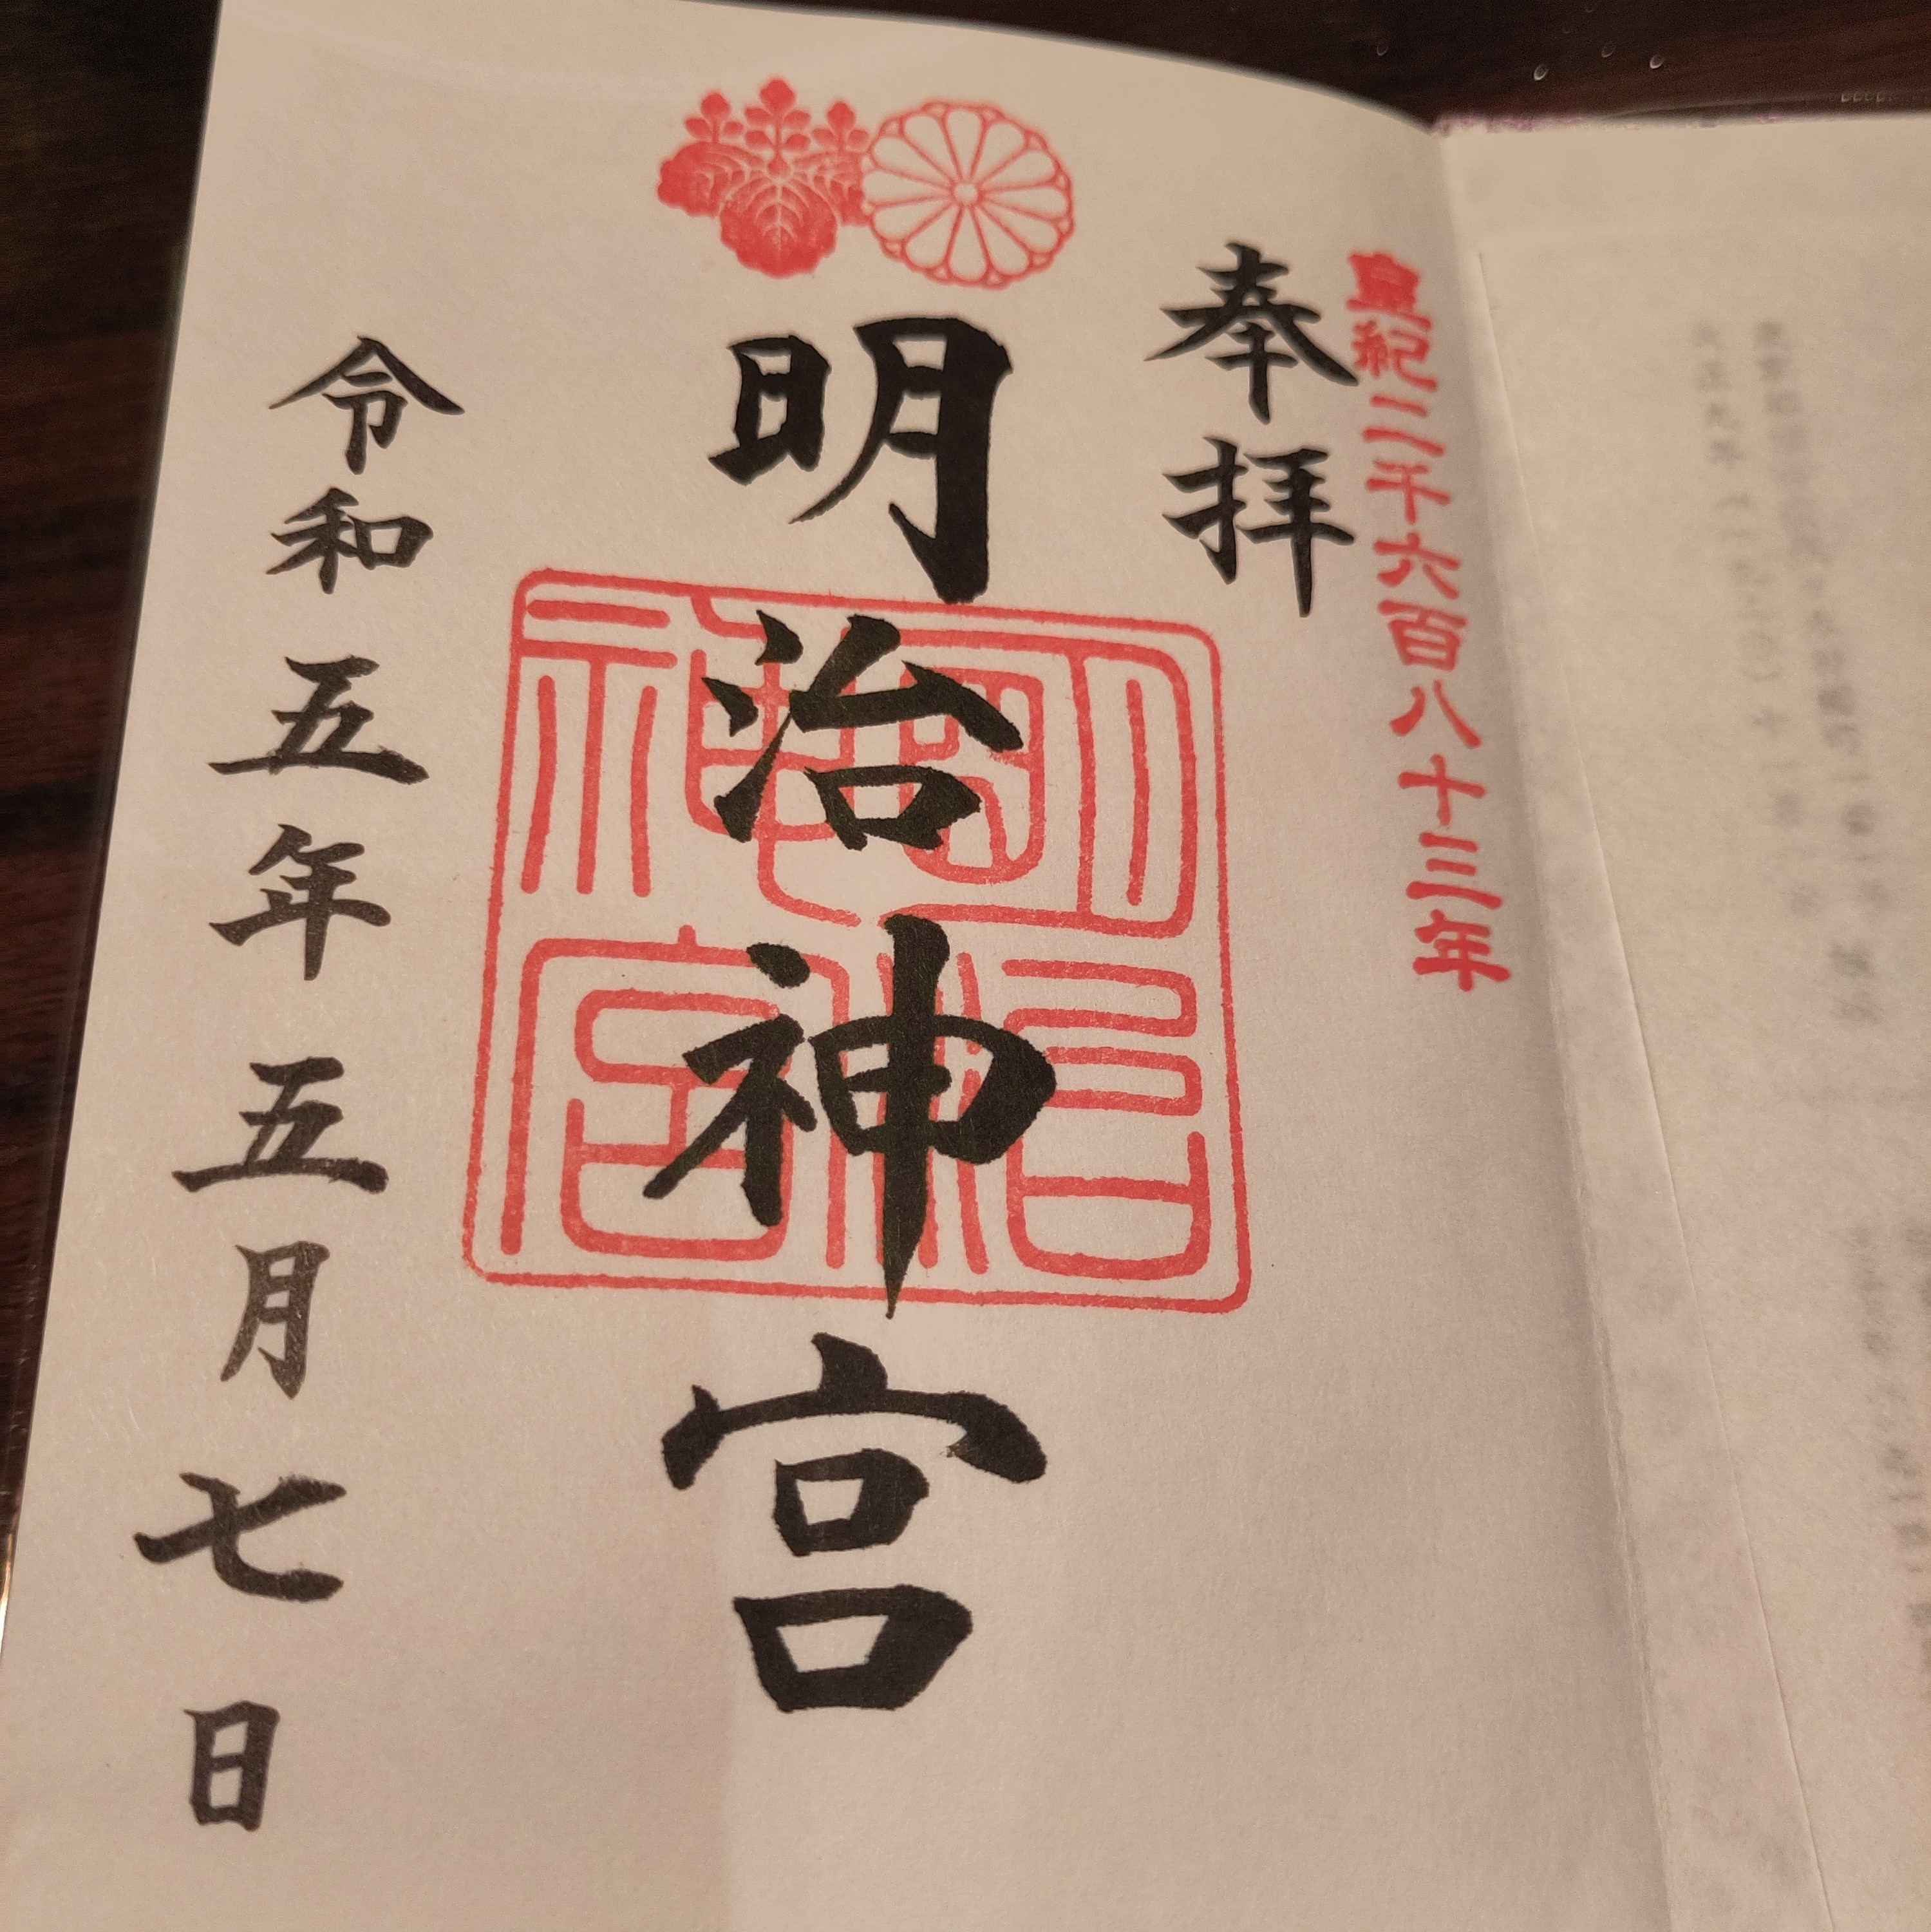 皇紀二千六百八十三年
奉拝
明治神宮
明治神宮
令和五年五月七日